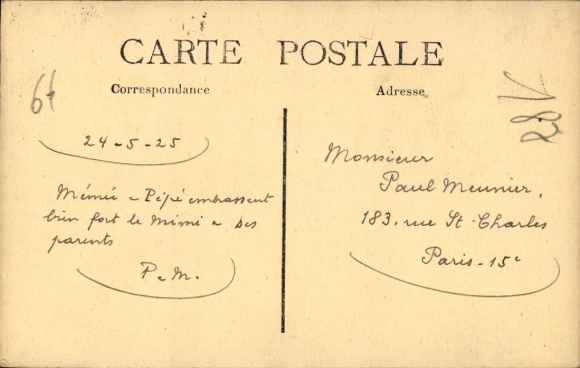 CARTE POSTALE
Correspondance
Adresse
64
28V
24-5-25
Mémée e Pépé embrassent
bien fort le Mimi e ses
parents
P e M.
Monsieur
Paul Meunier,
183, rue St Charles
Paris-15e